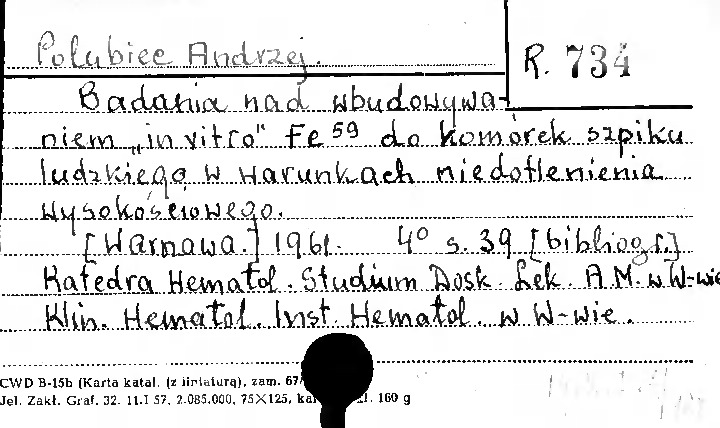 Połubiec Andrzej.
R. 734
Badania nad wbudowywa-
niem „in vitro" Fe 59 do komórek szpiku
ludzkiego w warunkach niedotlenienia
wysokościowego.
[Warszawa.] 1961. 4° s. 39 [bibliogr.]
Katedra Hematol. Studium Dosk. Lek. A.M. w W-wie
Klin. Hematol. Inst. Hematol. w W-wie.
CWD B-15b (Karta katal. (z liniaturą), zam. 67
Jel. Zakł. Graf. 32. 11.I 57. 2.085.000, 75X125, 160 g